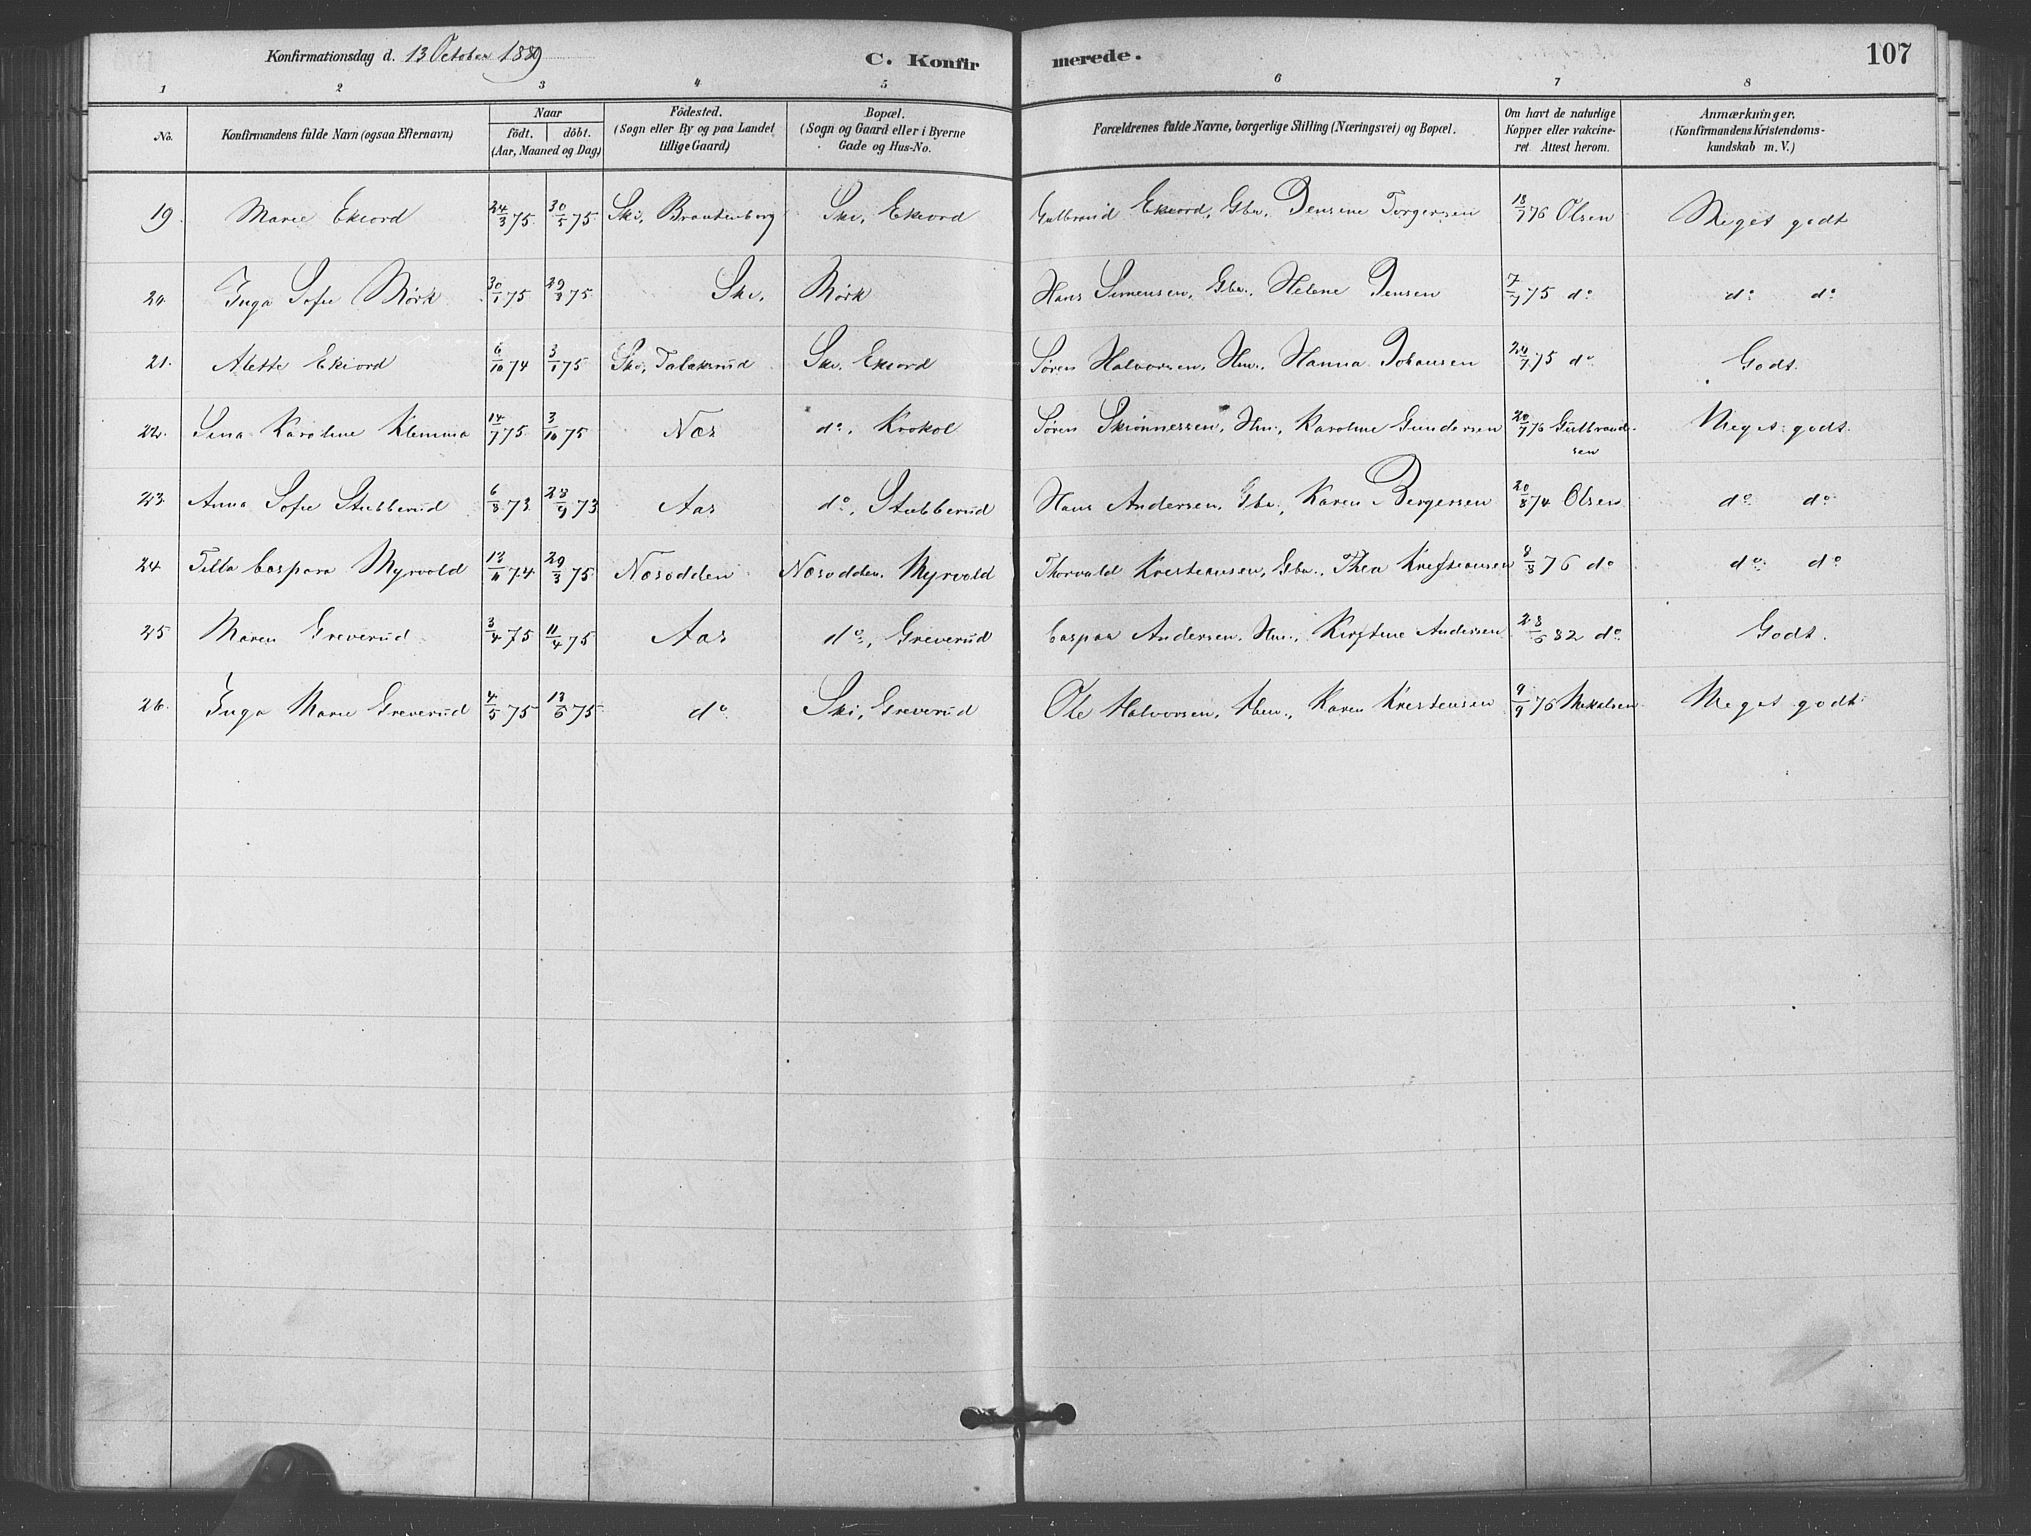 Konfirmationsdag d. 13 October 1889
C. Konfirmerede.
107
1 2 3 4 5 6 7 8
No.
Konfirmandens fulde Navn (ogsaa Efternavn)
Naar
födt. döbt.
(Aar, Maaned og Dag)
Födested.
(Sogn eller By og paa Landet
tillige Gaard)
Bopæl.
(Sogn og Gaard eller i Byerne
Gade og Hus-No.
Forældrenes fulde Navne, borgerlige Stilling (Næringsvei) og Bopæl.
Om havt de naturlige
Kopper eller vakcine-
ret Attest herom.
Anmærkninger.
(Konfirmandens Kristendoms-
kundskab m. V.)
19. Marie Ekeord 24/3 75. 30/5 75 Ski, Brandenborg Ski, Ekeord Gulbrand Ekeord, Gbr., Jensine Torgersen 18/7 76 Olsen Meget godt
20. Inga Sofie Mörk 30/1 75 29/3 75. Ski, Mörk Hans Simensen, Gbr., Helene Jensen 7/7 75 do do do
21. Alette Ekeord 6/10 74 3/1 75 Ski, Talaksrud Ski, Ekeord Søren Halvorsen, Hm., Hanna Johansen 24/7 75 do Godt.
22. Sina Karoline Klemma 14/7 75. 3/10 75 Næs do, Krokol Søren Hm., Karoline Gundersen 20/7 76 Gulbrand-
sen Meget godt.
23. Anna Sofie Stubberud 6/8 73. 28/9 73 Aas do, Stubberud Hans Andersen, Gbr., Karen Bergersen 20/8 74 Olsen do do
24. Tilla Caspara Myrvold 13/11 74 29/3 75. Næsodden Næsodden, Myrvold Thorvald Kristiansen, Gbr., Thea Kristiansen 8/8 76 do do do
25 Maren Greverud 3/4 75 11/4 75 Aas do, Greverud Caspar Andersen, Hm., Kirstine Andersen 28/6 82 do Godt.
26. Inga Marie Greverud 4/5 75 13/6 75 do Ski, Greverud Ole Halvorsen, Hm., Karen Kristensen 9/9 76 Mikalsen Meget godt.